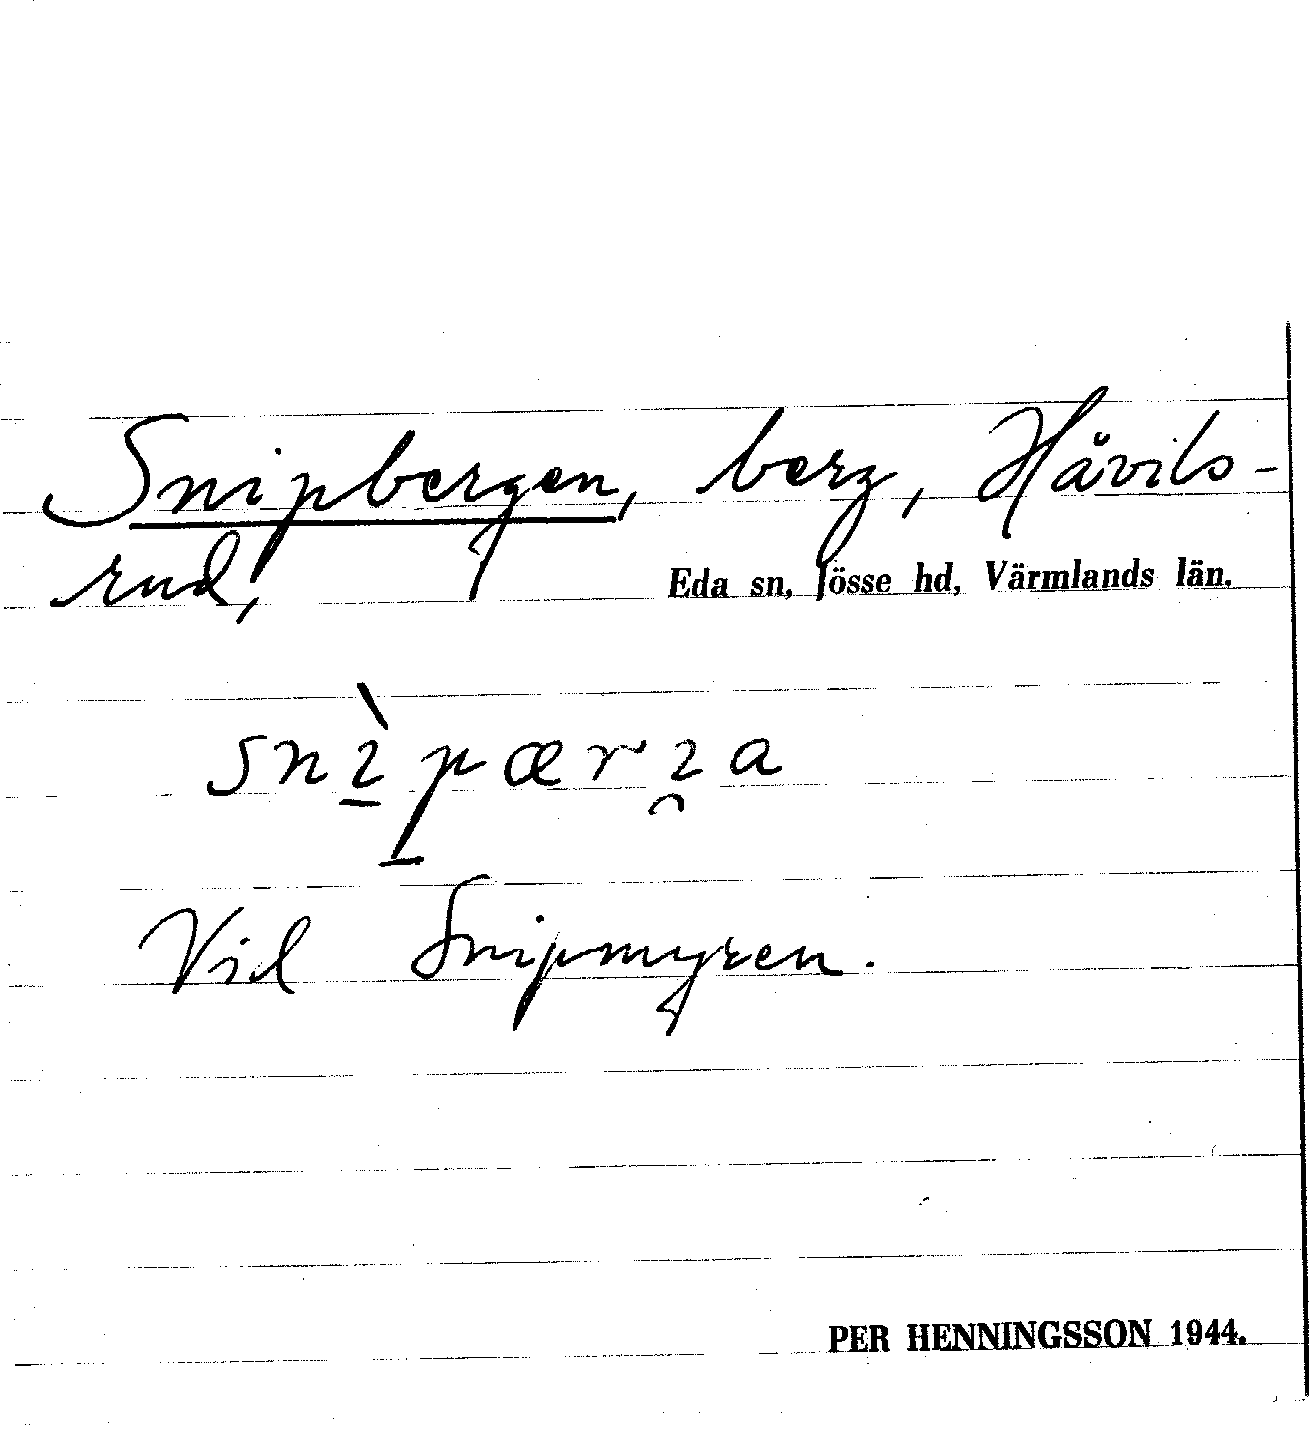 Snipbergen, berg, Håvils-
rud,
Eda sn, Jösse hd, Värmlands län.
snı̀pærı̯a
Vid Snipmyren.
PER HENNINGSSON 1944.